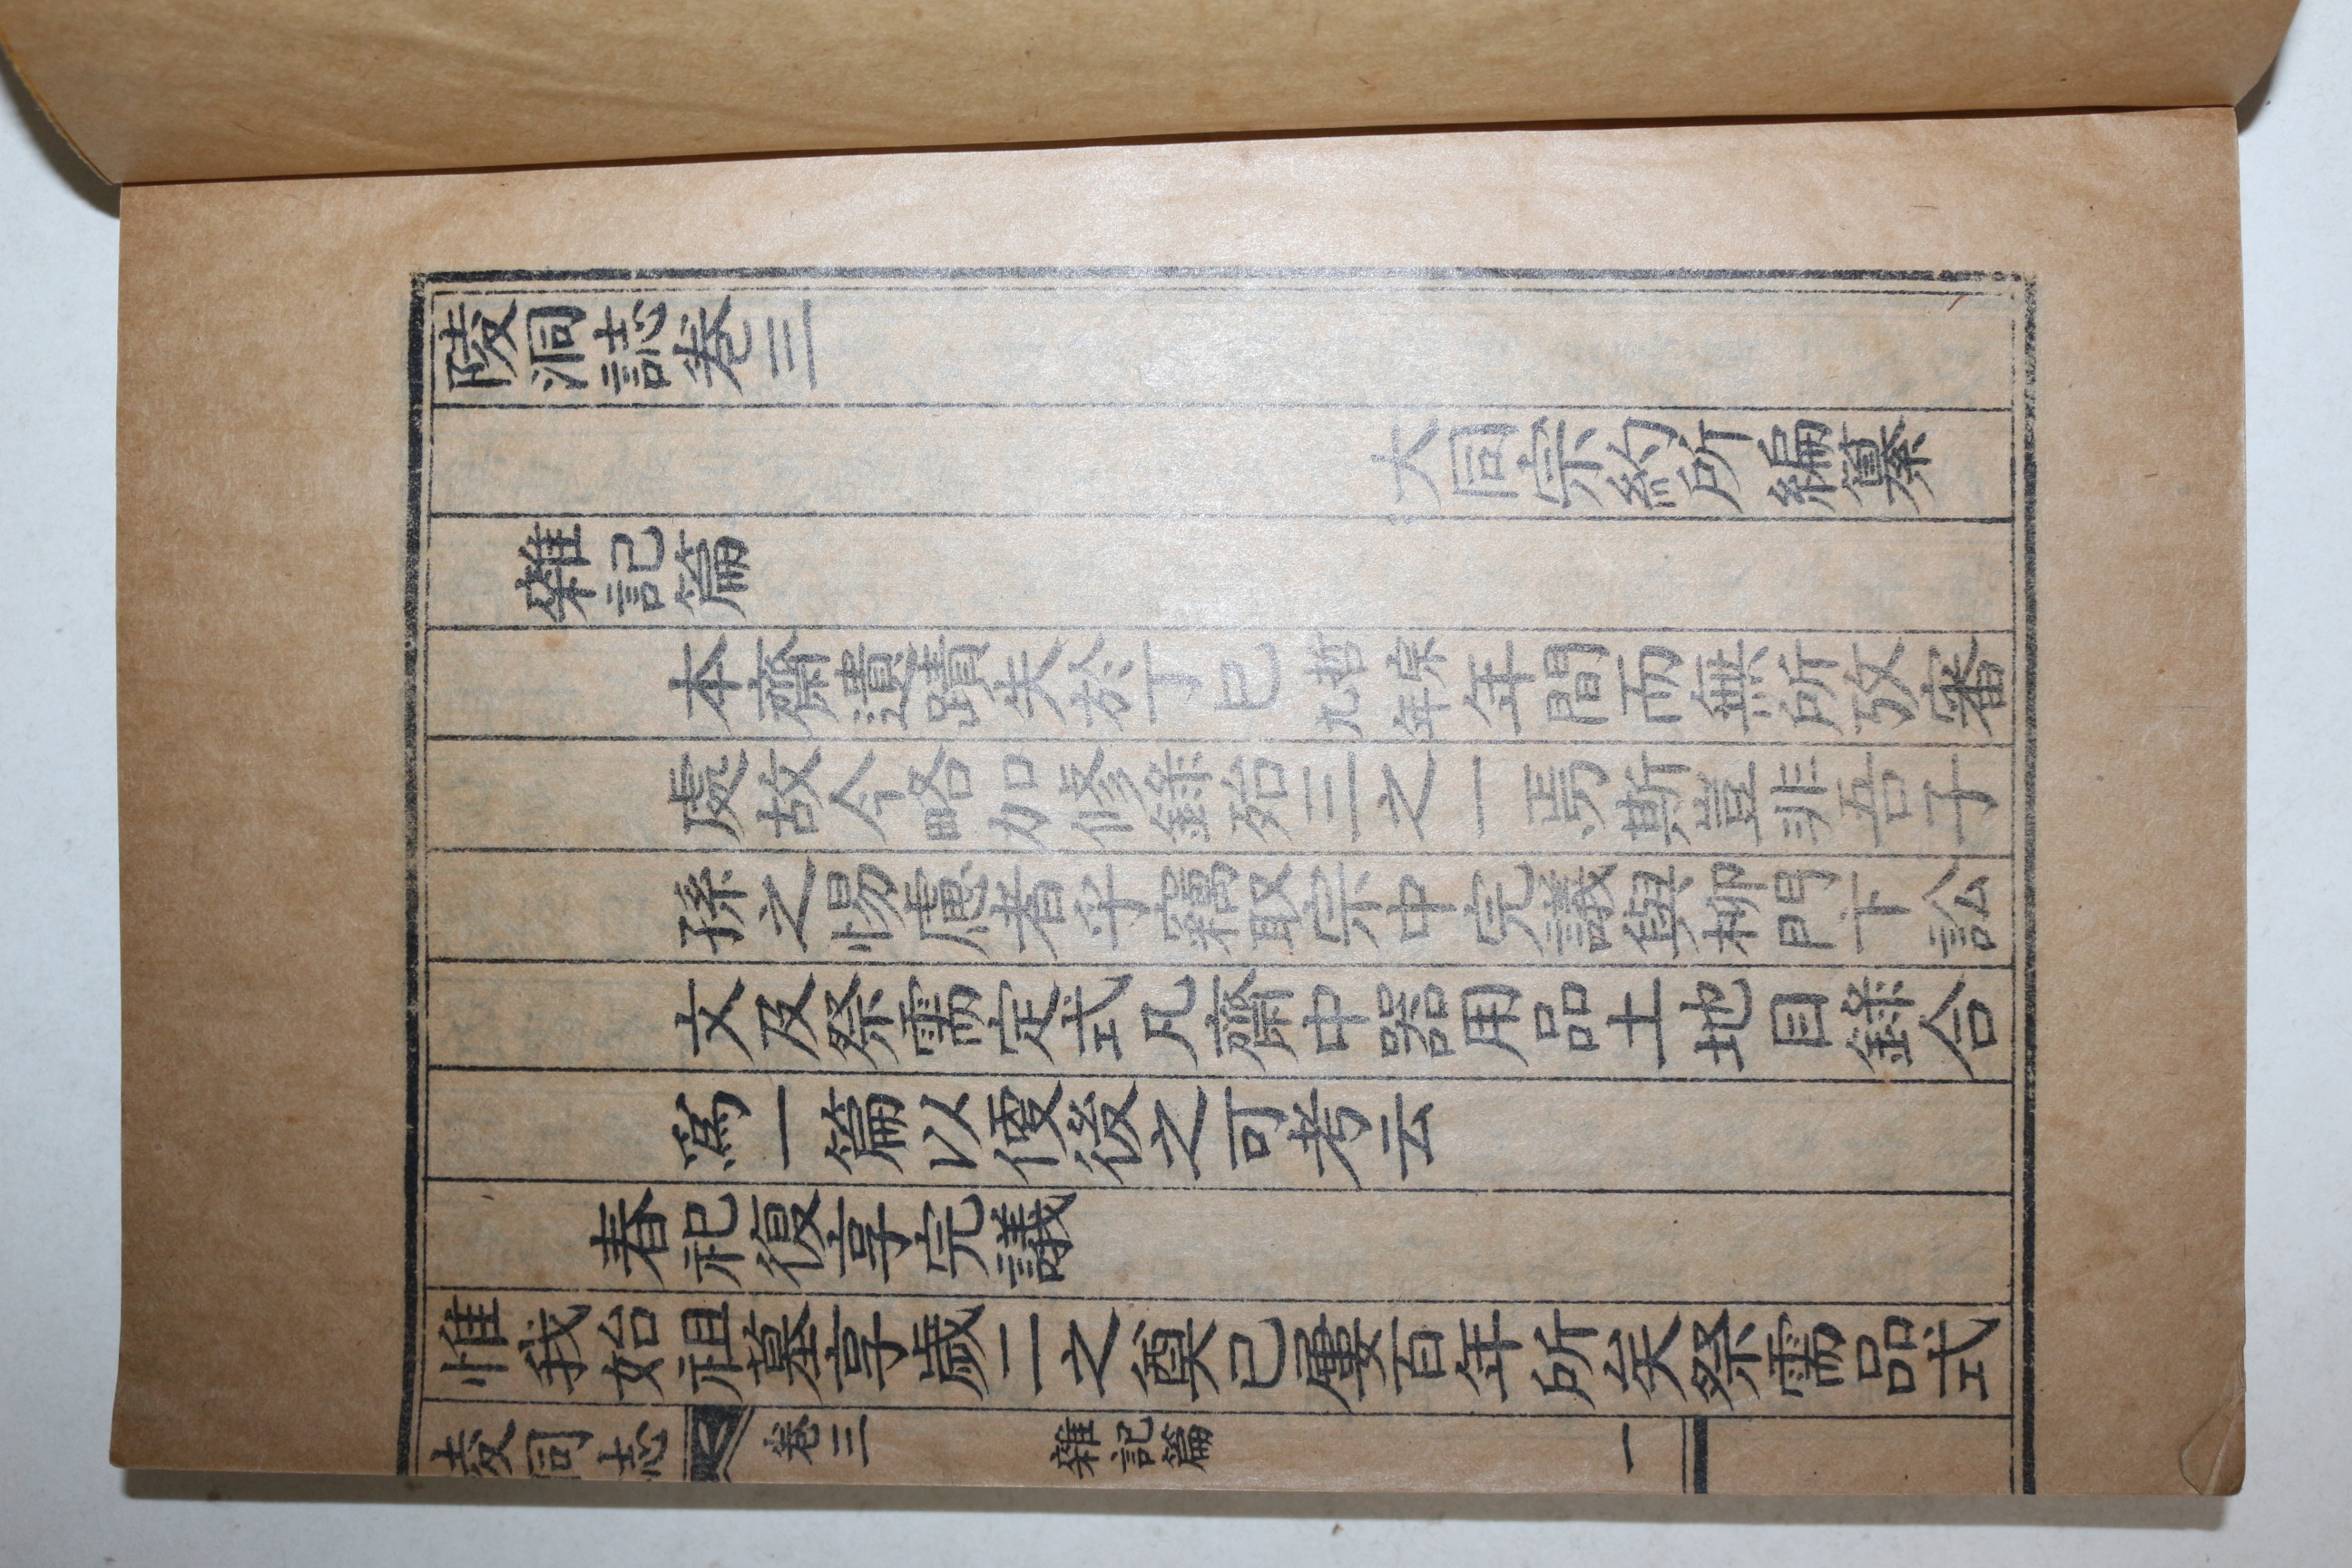 陵洞誌卷三
大同宗約所編纂
雜記篇
本齋遺蹟失於丁巳哲宗九年年間而無所攷審
處故今略加修錄殆三之一焉斯豈非吾子
孫之惕慮者乎竊取宗中完議與柳門下訟
文及祭需定式凡齋中器用品土地目錄合
爲一篇以便後之可考云
春祀復享完議
惟我始祖墓享歲二之奠已屢百年所矣祭需品式
陵洞誌 卷三 雜記篇 一